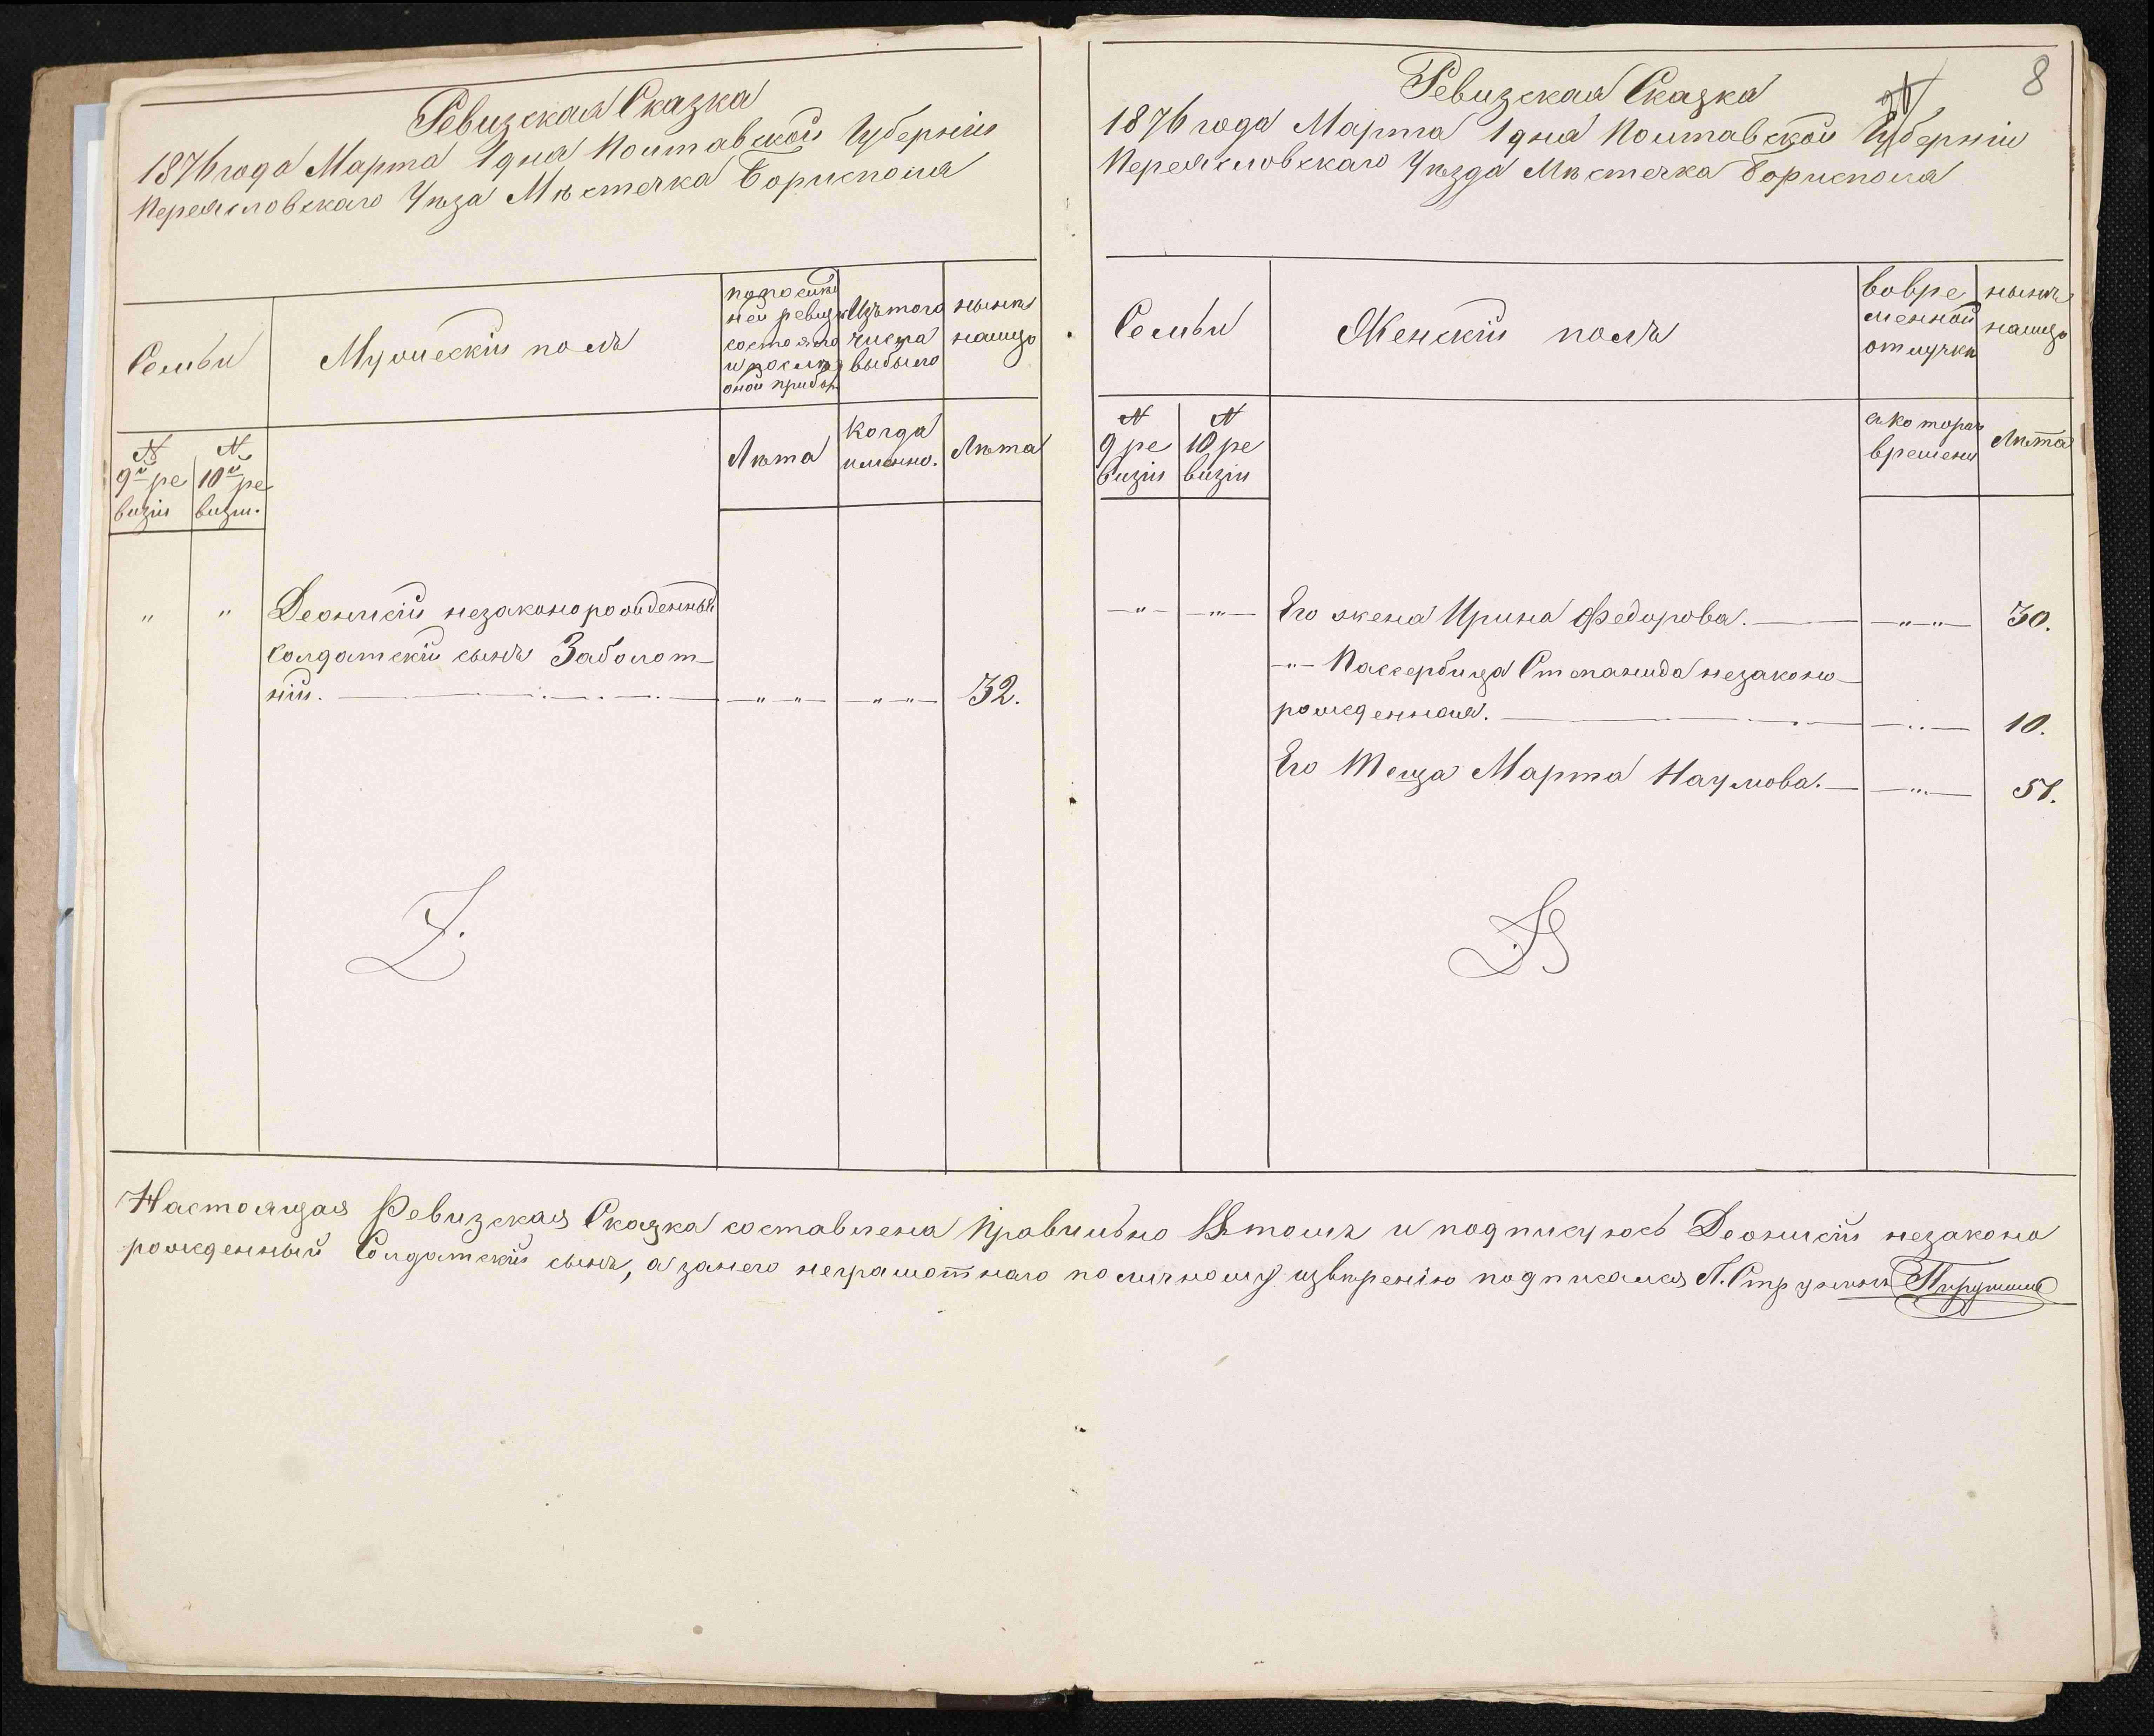 Ревизская Сказка
1876 года Марта 1 дня Полтавской Губернии
Переясловскаго Уѣза Мѣстечка Борисполя
Семьи
Мужескiй полъ
По послѣд
ней ревизiи
состояло
и послѣ
оной прибы
Изъ того
числа
выбыло
нынѣ
на лицо
№
9й ре
визiи
№
10й ре
визiи.
Лѣта
Когда
именно.
Лѣта
" " Деонисiй незаконорожденный
Солдатскiй сынъ Заболот-
нiй. — " " — — " " — 32.
8
Ревизская Сказка
1876 года Марта 1 дня Полтавской Губернiи
Переясловскаго Уѣзда Мѣстечка Борисполя
Семьи
Женскiй полъ
вовре
менной
отлучкѣ
нынѣ
на лицо
№
9 ре
визiи
№
10 ре
визiи
с котораго
времени
Лѣта
— " — — " — Его жена Ирина Федорова. — — " " — 30.
— " — Пасербица Степанида незаконо-
рожденная. — 10.
Его Теща Марта Наумова. — — " — 51.
Настоящая Ревизская Сказка составлена Правильно Втомъ и подписуюсь Деонисiй незаконо
рожденный Солдатскiй сынъ, а занего неграмотнаго по личному извѣренiю подписался А.